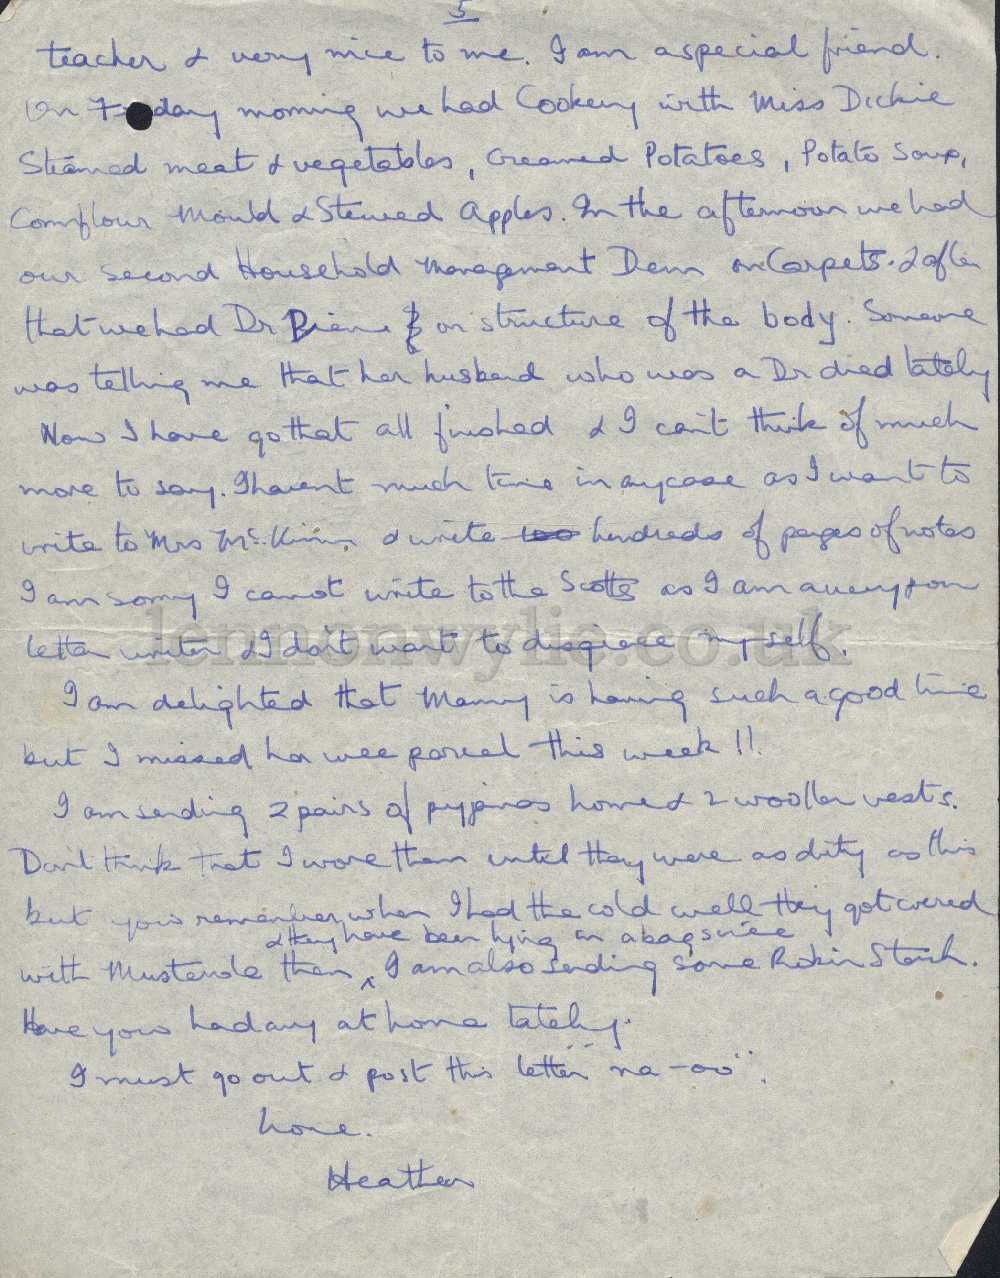 5
teacher & very nice to me. I am a special friend.
On Friday morning we had Cookery with Miss Dickie
Steamed meat & vegetables, Creamed Potatoes, Potato Soup,
Cornflour Mould & Stewed Apples. In the afternoon we had
our second Household Management Dem on Carpets. & after
that we had Dr on structure of the body. Someone
was telling me that her husband who was a Dr died lately
Now I have got that all finished & I can't think of much
more to say. I havent much time in any case as I want to
write to Mrs & write hundreds of pages of notes
I am sorry I cannot write to the Scotts as I am a very poor
letter writer & I don't want to disgrace myself.
lennonwylie.co.uk
I am delighted that Mammy is having such a good time
but I missed her wee parcel this week !!.
I am sending 2 pairs of pyjamas home & 2 woollen vests.
Don't think that I wore them until they were as dirty as this
but you remember when I had the cold well they got covered
& they have been lying in a bag since
with Musterole then ^ I am also sending some Robin Starch.
Have you had any at home lately.
I must go out & post this letter "na-oo".
Love.
Heather